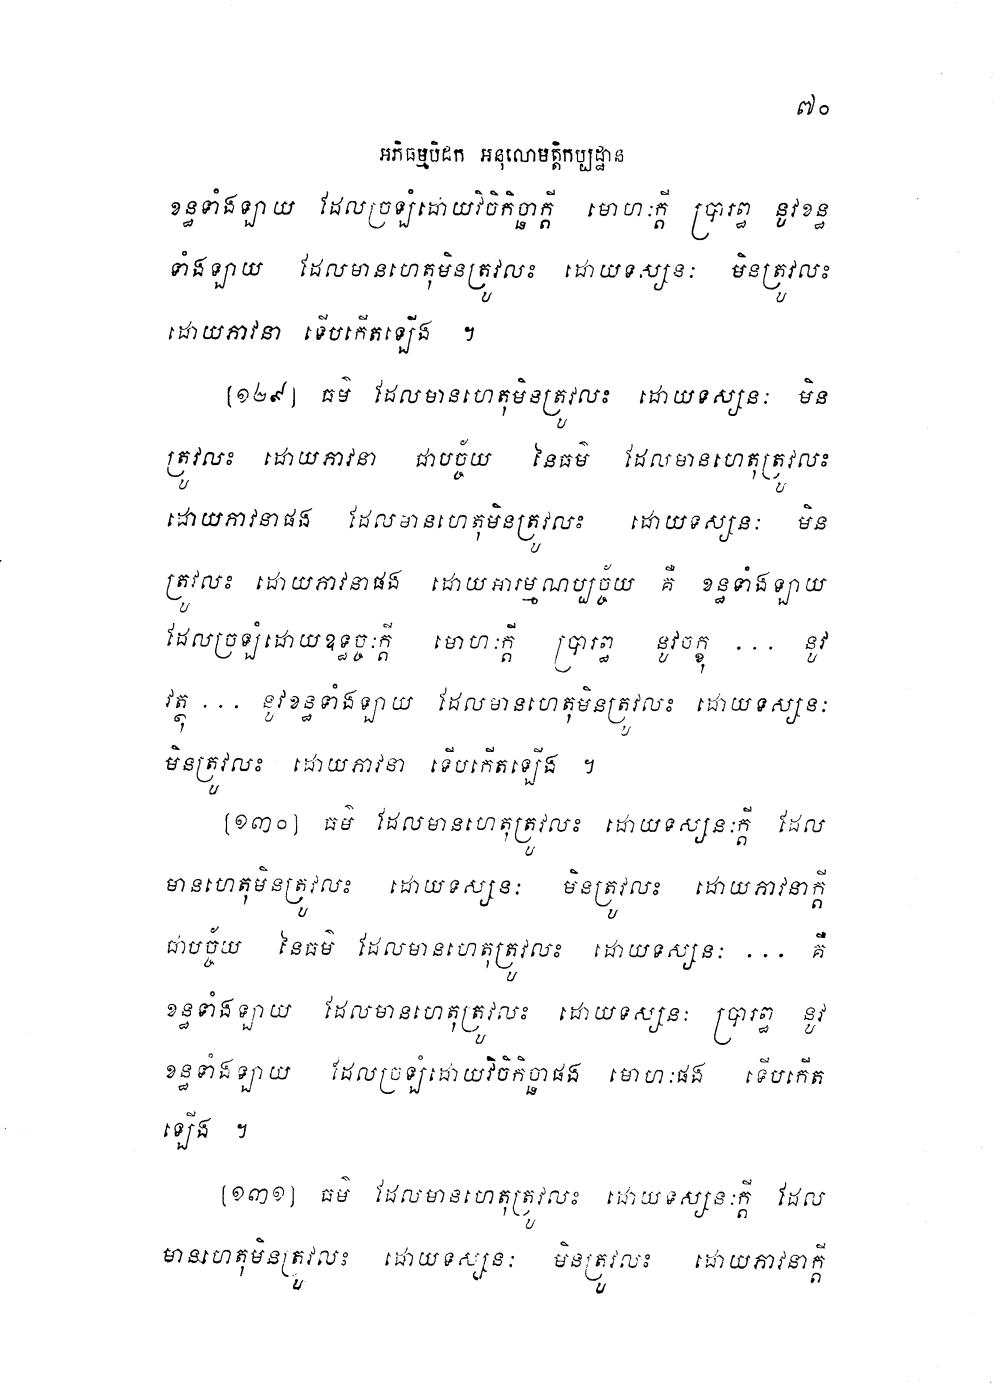 ៧០
អភិធម្មបិដក អនុលោមត្តិកប្បដ្ឋាន
ខន្ធទាំងឡាយ ដែលច្រឡំដោយវិចិកិច្ឆាក្តី មោហៈក្តី ប្រារព្ធ នូវខន្ធ
ទាំងឡាយ ដែលមានហេតុមិនត្រូវលះ ដោយទស្សនៈ មិនត្រូវលះ
ដោយភាវនា ទើបកើតឡើង ។
[១២៩] ធម៌ ដែលមានហេតុមិនត្រូវលះ ដោយទស្សនៈ មិន
ត្រូវលះ ដោយភាវនា ជាបច្ច័យ នៃធម៌ ដែលមានហេតុត្រូវលះ
ដោយភាវនាផង ដែលមានហេតុមិនត្រូវលះ ដោយទស្សនៈ មិន
ត្រូវលះ ដោយភាវនាផង ដោយអារម្មណប្បច្ច័យ គឺ ខន្ធទាំងឡាយ
ដែលច្រឡំដោយឧទ្ធច្ចៈក្តី មោហៈក្តី ប្រារព្ធ នូវចក្ខុ ... នូវ
វត្ថុ ... នូវខន្ធទាំងឡាយ ដែលមានហេតុមិនត្រូវលះ ដោយទស្សនៈ
មិនត្រូវលះ ដោយភាវនា ទើបកើតឡើង ។
[១៣០] ធម៌ ដែលមានហេតុត្រូវលះ ដោយទស្សនៈក្តី ដែល
មានហេតុមិនត្រូវលះ ដោយទស្សនៈ មិនត្រូវលះ ដោយភាវនាក្តី
ជាបច្ច័យ នៃធម៌ ដែលមានហេតុត្រូវលះ ដោយទស្សនៈ ... គឺ
ខន្ធទាំងឡាយ ដែលមានហេតុត្រូវលះ ដោយទស្សនៈ ប្រារព្ធ នូវ
ខន្ធទាំងឡាយ ដែលច្រឡំដោយវិចិកិច្ឆាផង មោហៈផង ទើបកើត
ឡើង ។
[១៣១] ធម៌ ដែលមានហេតុត្រូវលះ ដោយទស្សនៈក្តី ដែល
មានហេតុមិនត្រូវលះ ដោយទស្សនៈ មិនត្រូវលះ ដោយភាវនាក្តី